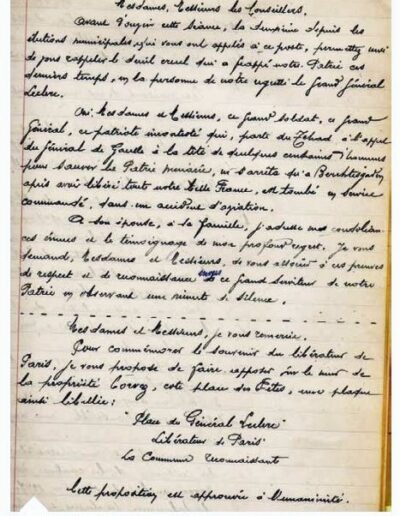 Mesdames, Messieurs les Conseillers.
Avant d'ouvrir cette séance, la deuxième depuis les
élections municipales, qui vous ont appelés à ce poste, permettez moi
de vous rappeler le deuil cruel qui a frappé notre Patrie ces
derniers temps, en la personne de notre regretté le Grand Général
Leclerc.
Oui Mesdames et Messieurs, ce Grand soldat, ce Grand
Général, ce patriote incontesté qui, parti du Tchad à l'appel
du Général de Gaulle à la tête de quelques centaines d'hommes
pour sauver la Patrie menacée, ne s'arrêta qu'à Berchtesgaden
après avoir libéré toute notre belle France, est tombé en service
commandé, dans un accident d'aviation.
A son épouse, à sa famille, j'adresse mes condoléan-
ces émues et le témoignage de mon profond regret. Je vous
demande, Mesdames et Messieurs, de vous associer à ces preuves
de respect et de reconnaissance envers ce Grand Serviteur de notre
Patrie en observant une minute de silence.
Mesdames et Messieurs, je vous remercie.
Pour commémorer le souvenir du libérateur de
Paris, je vous propose de faire apposer sur le mur de
la propriété, coté place des Fêtes, une plaque
ainsi libellée:
"Place du Général Leclerc"
Libérateur de Paris
La Commune reconnaissante
Cette proposition est approuvée à l'unanimité.